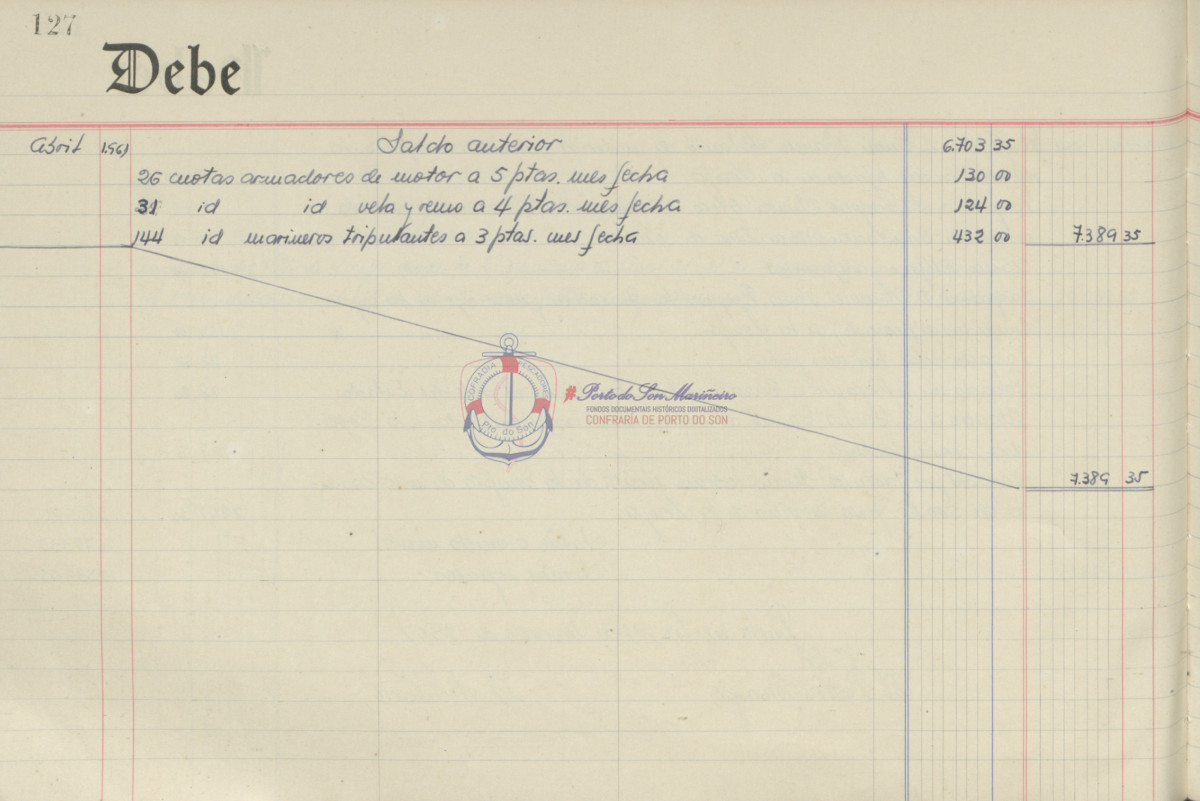 127
Debe
Abril 1961 Saldo anterior 6.703 35
26 cuotas armadores de motor a 5 ptas. mes fecha 130 00
31 id id vela y remo a 4 ptas. mes fecha 124 00
144 id marineros tripulantes a 3 ptas. mes fecha 432 00 7.389 35
COFRADIA PESCADORES
Pto. do Son
#Porto do Son Mariñeiro
FONDOS DOCUMENTAIS HISTÓRICOS DIXITALIZADOS
CONFRARÍA DE PORTO DO SON
7.389 35